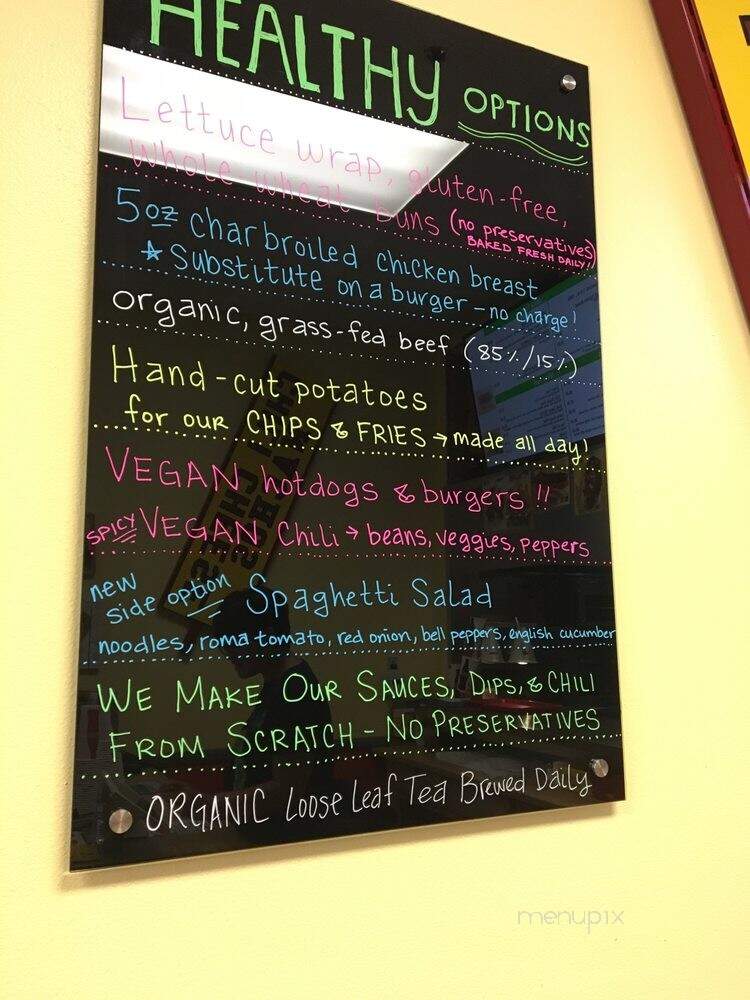 HEALTHY OPTIONS
Lettuce wrap, gluten-free,
Whole wheat buns (no preservatives)
BAKED FRESH DAILY!!
5oz charbroiled chicken breast
★ Substitute on a burger - no charge!
organic, grass-fed beef (85%/15%)
Hand-cut potatoes
for our CHIPS & FRIES → made all day!
VEGAN hotdogs & burgers !!
SPICY VEGAN Chili → beans, veggies, peppers
new
side option Spaghetti Salad
noodles, roma tomato, red onion, bell peppers, english cucumber
WE MAKE OUR SAUCES, DIPS, & CHILI
FROM SCRATCH - NO PRESERVATIVES
ORGANIC Loose Leaf Tea Brewed Daily
menupix